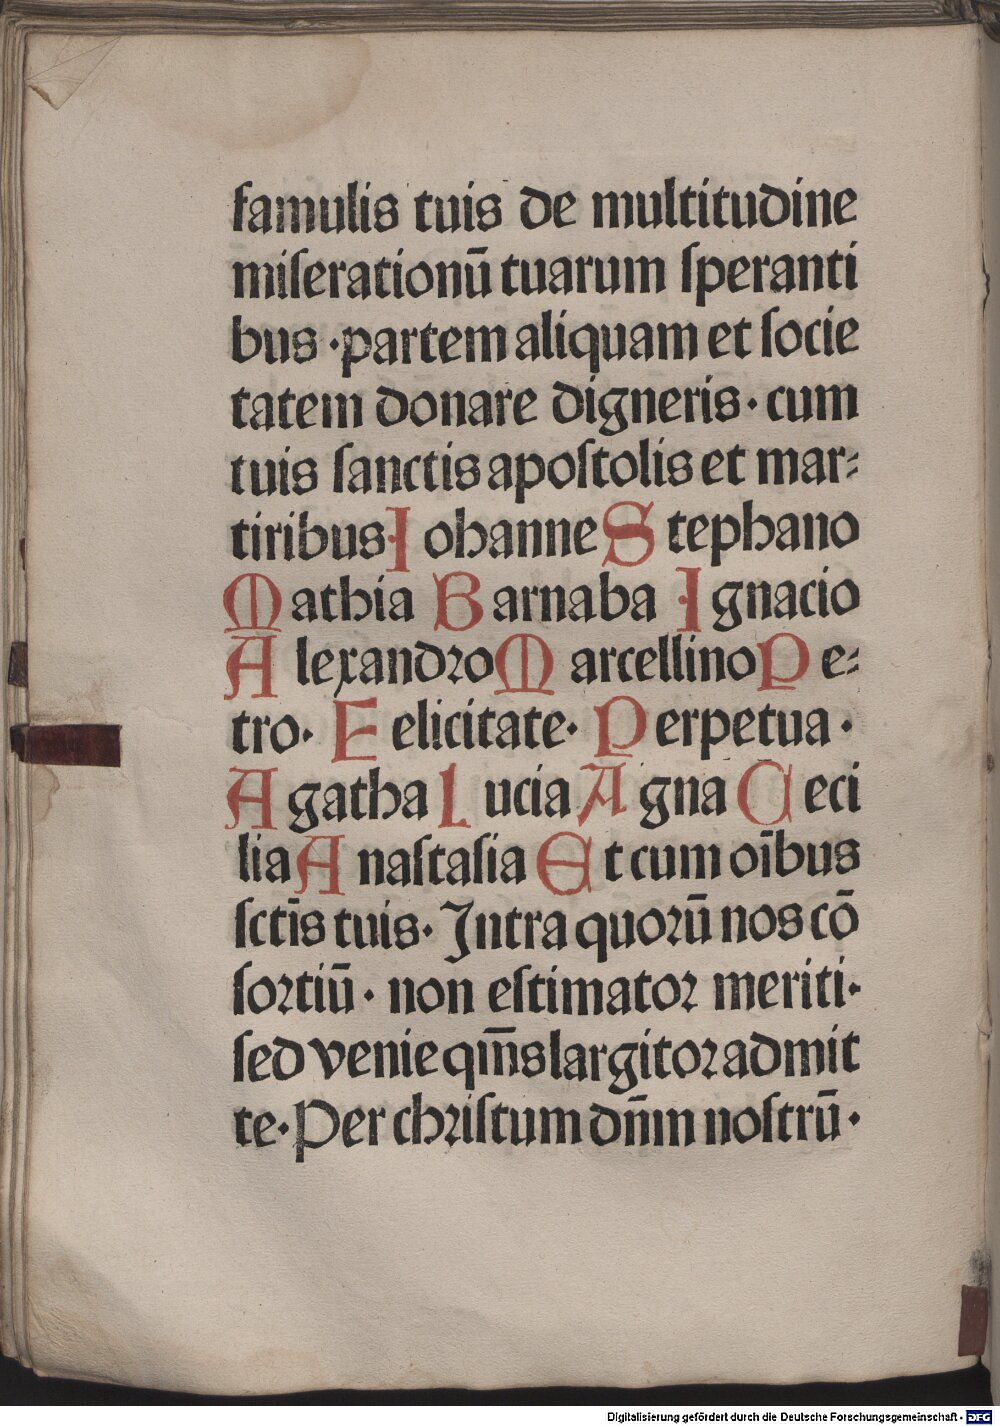 famulis tuis de multitudine
miſerationū tuarum ſperanti
bus · partem aliquam et ſocie
tatem donare digneris · cum
tuis ſanctis apoſtolis et mar⸗
tiribus Iohanne Stephano
Mathia Barnaba Ignacio
Alexandro Marcellino Pe⸗
tro · Eelicitate · Perpetua ·
Agatha Lucia Agna Ceci
lia Anaſtasia Et cum oībus
ſctīs tuis · Intra quorū nos cō
ſortiū · non eſtimator meriti ·
ſed venie qm̄s largitor admit
te · Per chriſtum dn̄m noſtrū ·
Digitalisierung gefördert durch die Deutsche Forschungsgemeinschaft - DFG